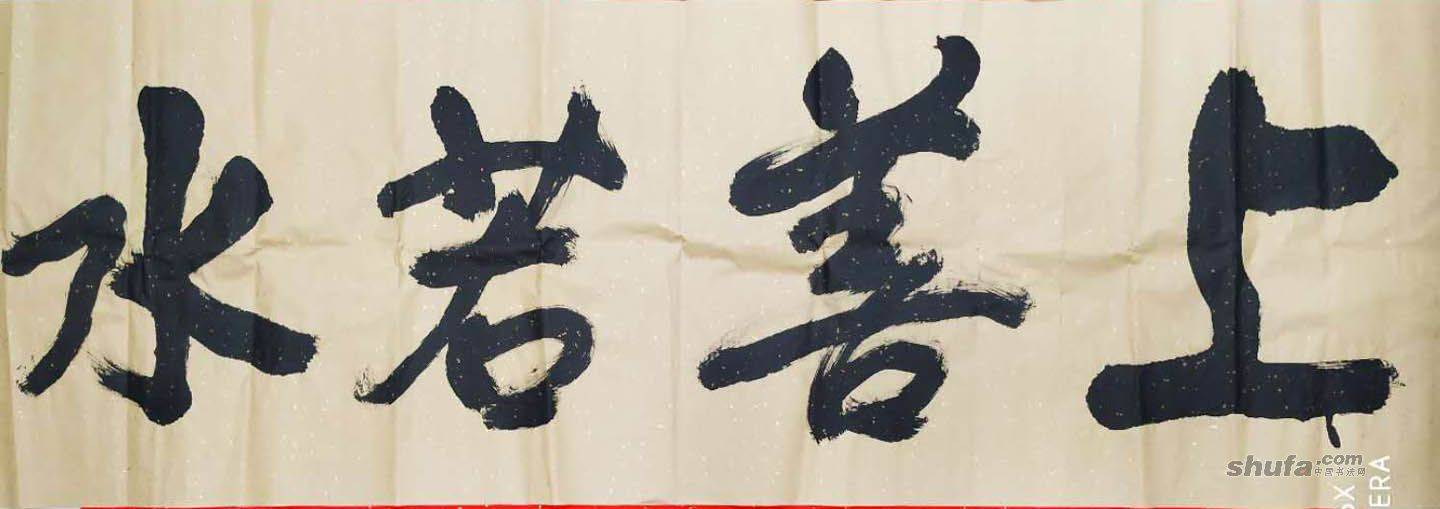 上善若水
shufa.com
中国书法网